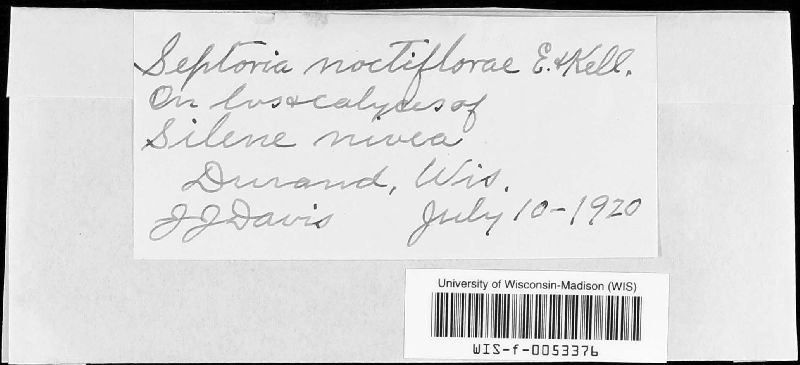 Septoria noctiflorae E. & Kell.
On lvs & calyces of
Silene nivea
Durand, Wis.
J J Davis July 10-1920
University of Wisconsin-Madison (WIS)
WIS-f-0053376